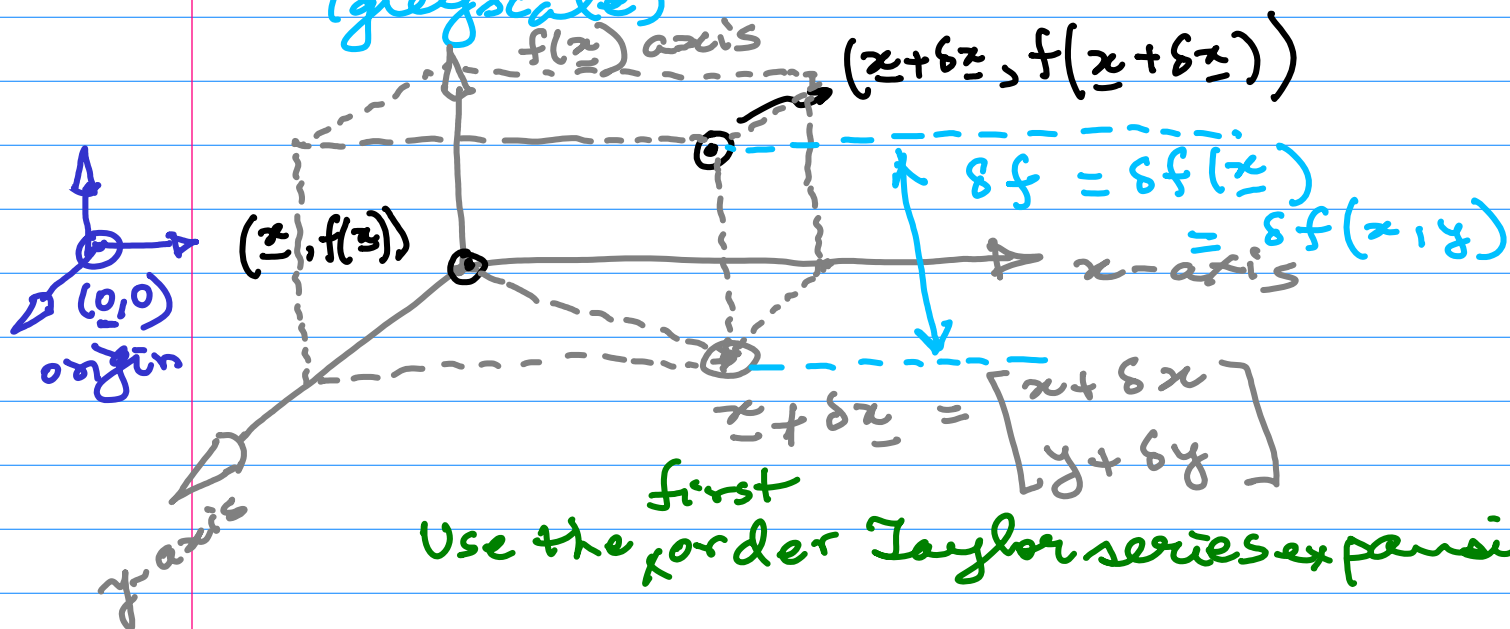 (greyscale)
f(x̲) axis
(x̲+δx̲, f(x̲+δx̲))
δf = δf(x̲)
= δf(x,y)
(x̲, f(x̲))
x-axis
(0̲,0)
origin
x̲+δx̲ = [x+δx
y+δy]
first
Use the order Taylor series expansi
y-axis